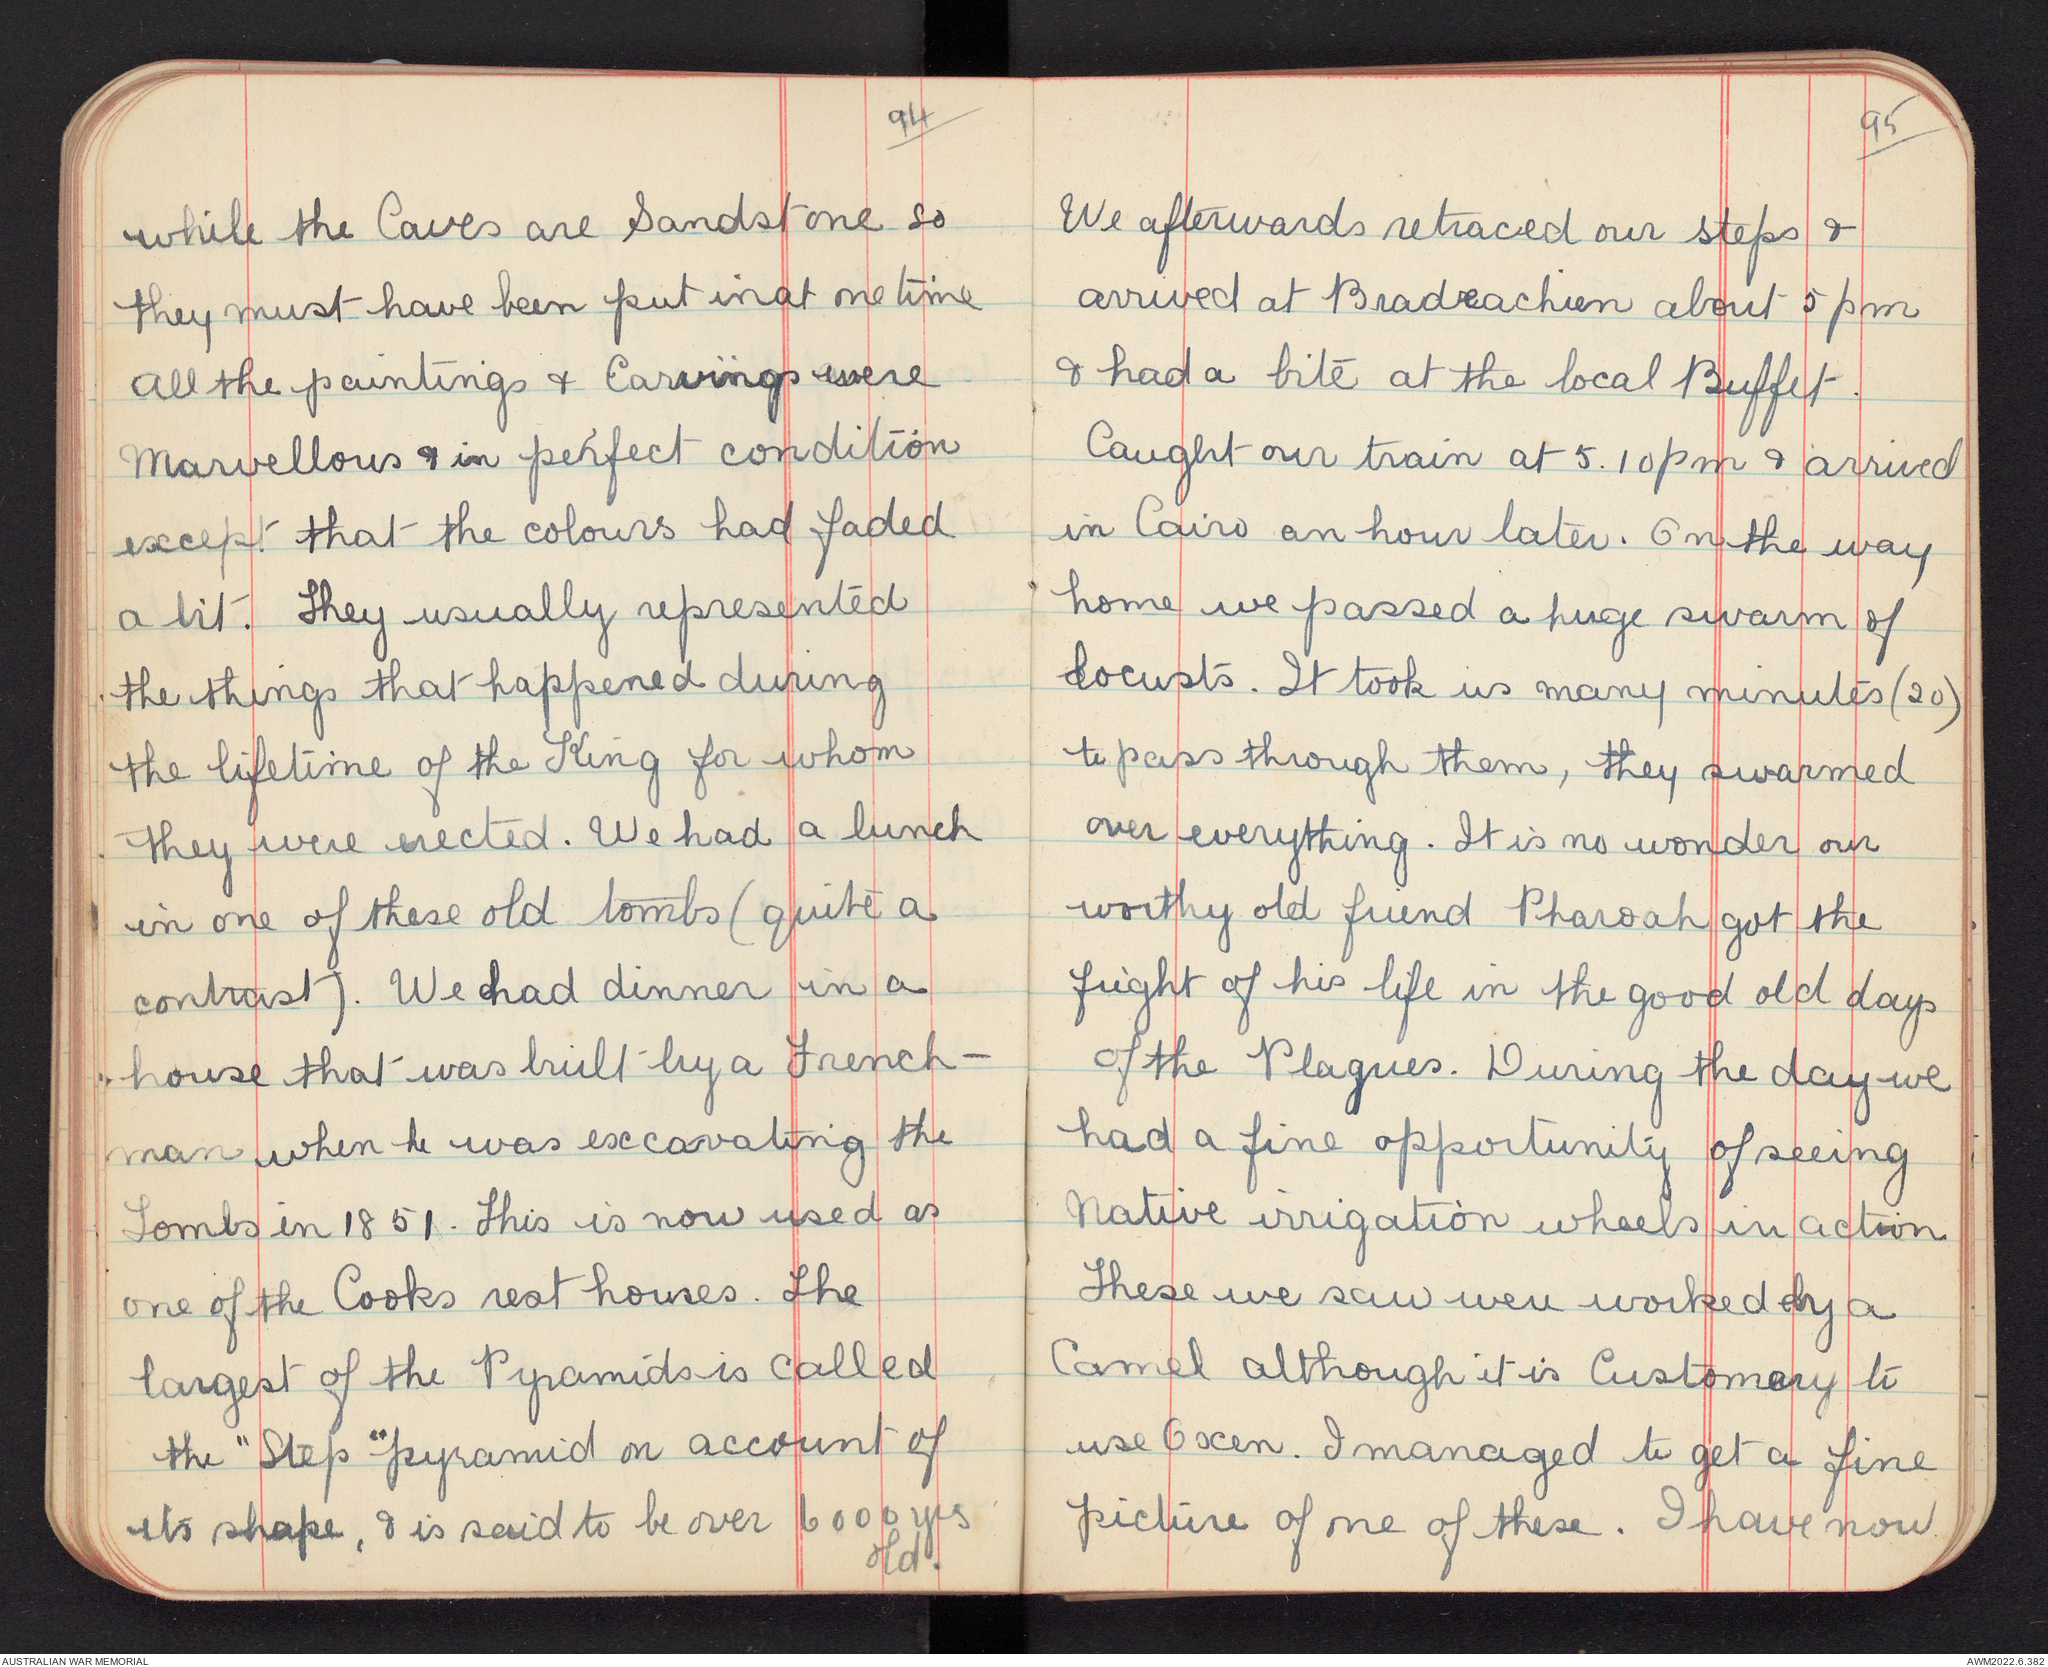 94
while the Caves are Sandstone so
they must have been put in at one time
All the paintings & Carvings were
Marvellous & in perfect condition
except that the colours had faded
a bit. They usually represented
the things that happened during
the lifetime of the King for whom
they were erected. We had a lunch
in one of these old tombs (quite a
contrast). We had dinner in a
house that was built by a French-
man when he was exccavating the
Tombs in 1851. This is now used as
one of the Cooks rest houses. The
largest of the Pyramids is called
the "Step" pyramid on account of
its shape, & is said to be over 6000 yrs
old.
95
We afterwards retraced our steps &
arrived at Bradrachien about 5 pm
& had a bite at the local Buffet.
Caught our train at 5.10pm & arrived
in Cairo an hour later. On the way
home we passed a huge swarm of
locusts. It took us many minutes (20)
to pass through them, they swarmed
over everything. It is no wonder our
worthy old friend Pharoah got the
fright of his life in the good old days
of the Plagues. During the day we
had a fine opportunity of seeing
Native irrigation wheels in action
These we saw were worked by a
Camel although it is Customary to
use Oxen. I managed to get a fine
picture of one of these. I have now
AUSTRALIAN WAR MEMORIAL
AWM2022.6.382